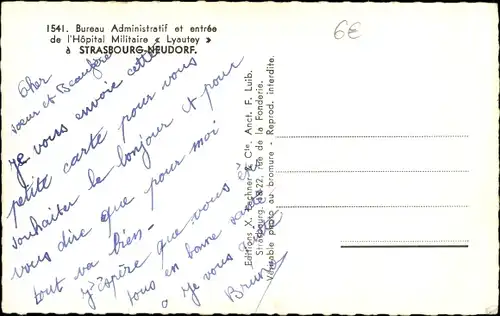 1541. Bureau Administratif et entrée
de l'Hôpital Militaire « Lyautey »
à STRASBOURG-NEUDORF.
6€
Cher
sœur et Beaufrère
Je vous envoie cette
petite carte pour vous
souhaiter le bonjour et pour
vous dire que pour moi
tout va bien -
J'espère que vous êtes
tous en bonne santé
Je vous
Bruno
Editions X. Lechner & Cie, Anct. F. Luib.
Strasbourg. 18-22, rue de la Fonderie.
Véritable photo au bromure - Reprod. interdite.